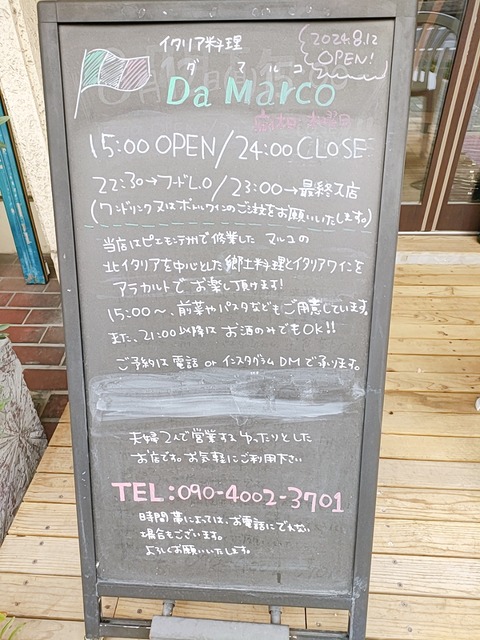 イタリア料理
2024.8.12
OPEN!
ダ マルコ
Da Marco
定休日:水曜日
15:00 OPEN/24:00 CLOSE
22:30→フードL.O/23:00→最終入店
(ワンドリンク又はボトルワインのご注文をお願いいたします。)
当店はピエモンテ州で修業した マルコの
北イタリアを中心とした郷土料理とイタリアワインを
アラカルトでお楽し頂けます!
15:00〜、前菜やパスタなどもご用意しています。
また、21:00以降は お酒のみでもOK!!
ご予約は電話 or インスタグラムDMで承ります。
夫婦2人で営業するゆったりとした
お店です。お気軽にご利用下さい
TEL:090-4002-3701
時間帯によっては、お電話にでれない
場合もございます。
よろしくお願いいたします。